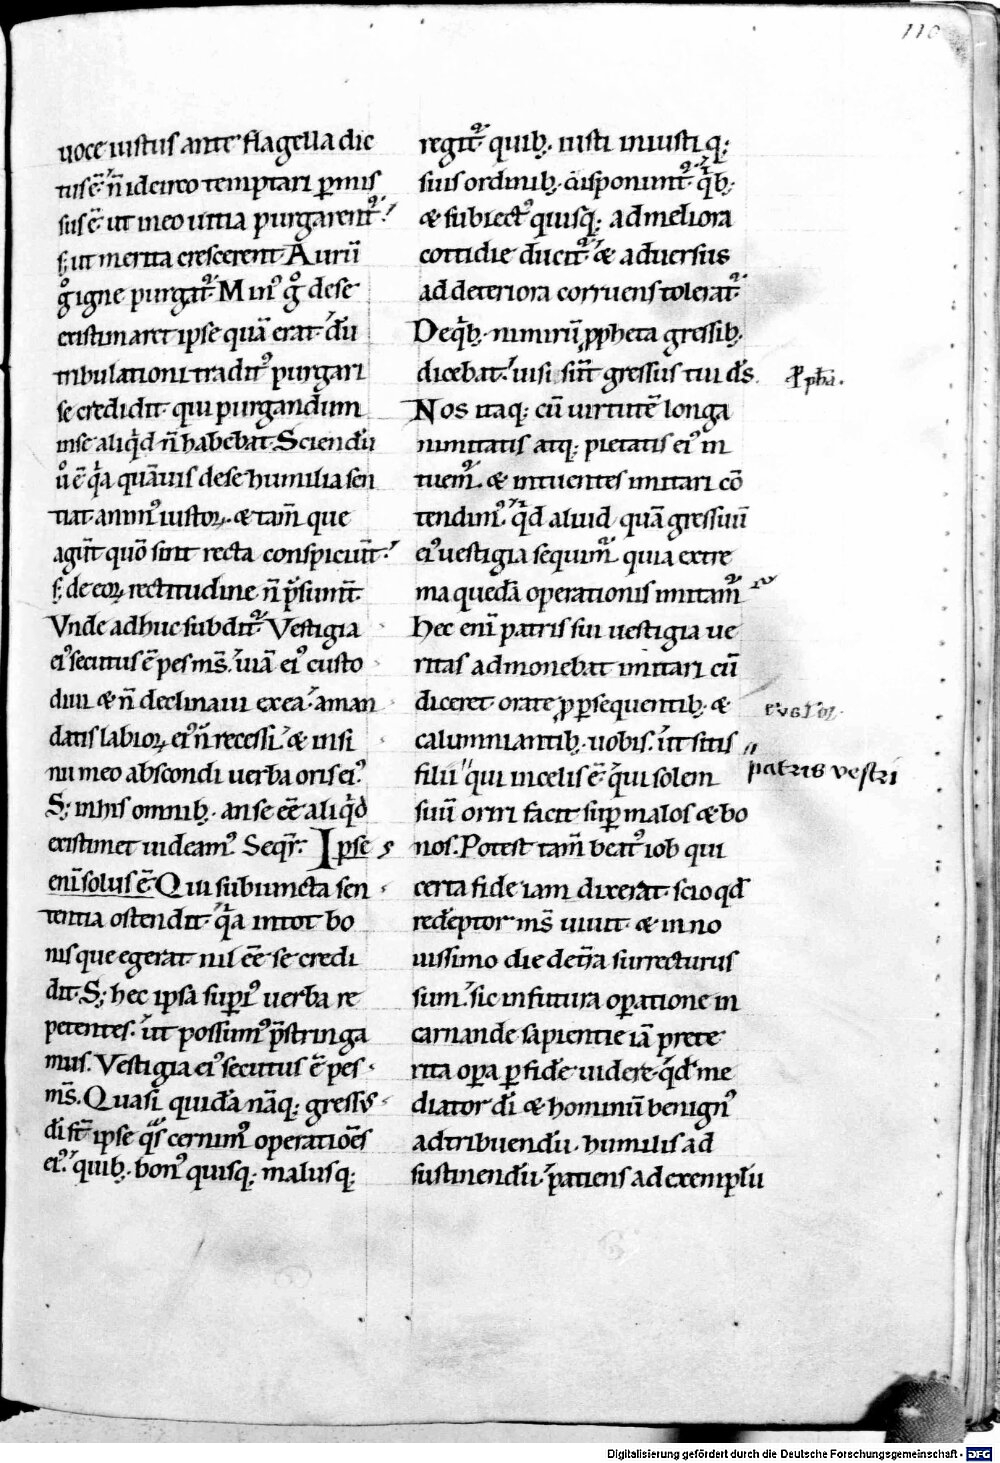 110
uoce iustus ante flagella dic
tus ē. n̄ idcirco temptari p̱mis
sus ē ut in eo uitia purgarent᷒.
s; ut merita crescerent. Aurū
g̊ igne purgat᷒. Min᷒ g̊ de se
existimaret ipse quā erat. dū
tribulationi tradit᷒ purgari
se credidit. qui purgandum
in se aliqͥd n̄ habebat. Sciendū
ů ē qͥa quāuis de se humilia sen
tiat anim᷒ iustoꝝ. & tam̄ que
agūt quō sint recta conspiciūt.
s; de eoꝝ rectitudine n̄ p̄sumūt.
Vnde adhuc subdit᷒. Vestigia
ei᷒ secutus ē pes ms̄. uiā ei᷒ custo
diui & n̄ declinaui ex ea. a man
datis labioꝝ ei᷒ n̄ recessi. & in si
nu meo abscondi uerba oris ei᷒.
S; in his omnib;. an se eē aliqͥd
existimet uideam᷒. Seqͥr. Ipse
eni solus ē. Qui subiuncta sen
tentia ostendit. qͥa in tot bo
nis que egerat. nil eē se credi
dit. S; hec ipsa supͥ uerba re
petentes. ut possum᷒ p̄stringa
mus. Vestigia ei᷒ secutus ē pes
ms̄. Quasi quidā nāq; gressus
di sūt ipse qͣs cernim᷒ operatiōes
ei᷒. quib;. bon᷒ quisq; malusq;
regit᷒. quib;. iusti iniustiq;
suis ordinib;. disponunt᷒. qͥb;.
& subiect᷒ quisq; ad meliora
cottidie ducit᷒. & aduersus
ad deteriora corruens tolerat᷒.
De qͥb;. nimirū ꝓpheta gressib;.
dicebat. uisi sūt gressus tui ds̄.
Nos itaq; cū uirtutē longa
nimitatis atq; pietatis ei᷒ in
tuem᷒. & intuentes imitari cō
tendim᷒. qͥd aliud quā gressuū
ei᷒ uestigia sequim᷒. quia extre
ma quedā operationis imitam᷒
Hec eni patris sui uestigia ue
ritas admonebat imitari cū
diceret. orate ꝓ ꝑsequentib;. &
calumniantib;. uobis. ut sitis
filii qui in celis ē. qͥ solem
suū oriri facit sup̱ malos & bo
nos. Potest tam̄ beat᷒ iob qui
certa fide iam dixerat. scio qd̄
redēptor ms̄ uiuit. & in no
uissimo die de tr̄a surrecturus
sum. sic in futura oꝑatione in
carnande sapientie iā prete
rita oꝑa ꝑ fidē uidere. qd̄ me
diator di & hominū benign᷒
ad tribuendū. humilis ad
sustinendū. patiens ad exemplū
patris vestri
Digitalisierung gefördert durch die Deutsche Forschungsgemeinschaft - DFG